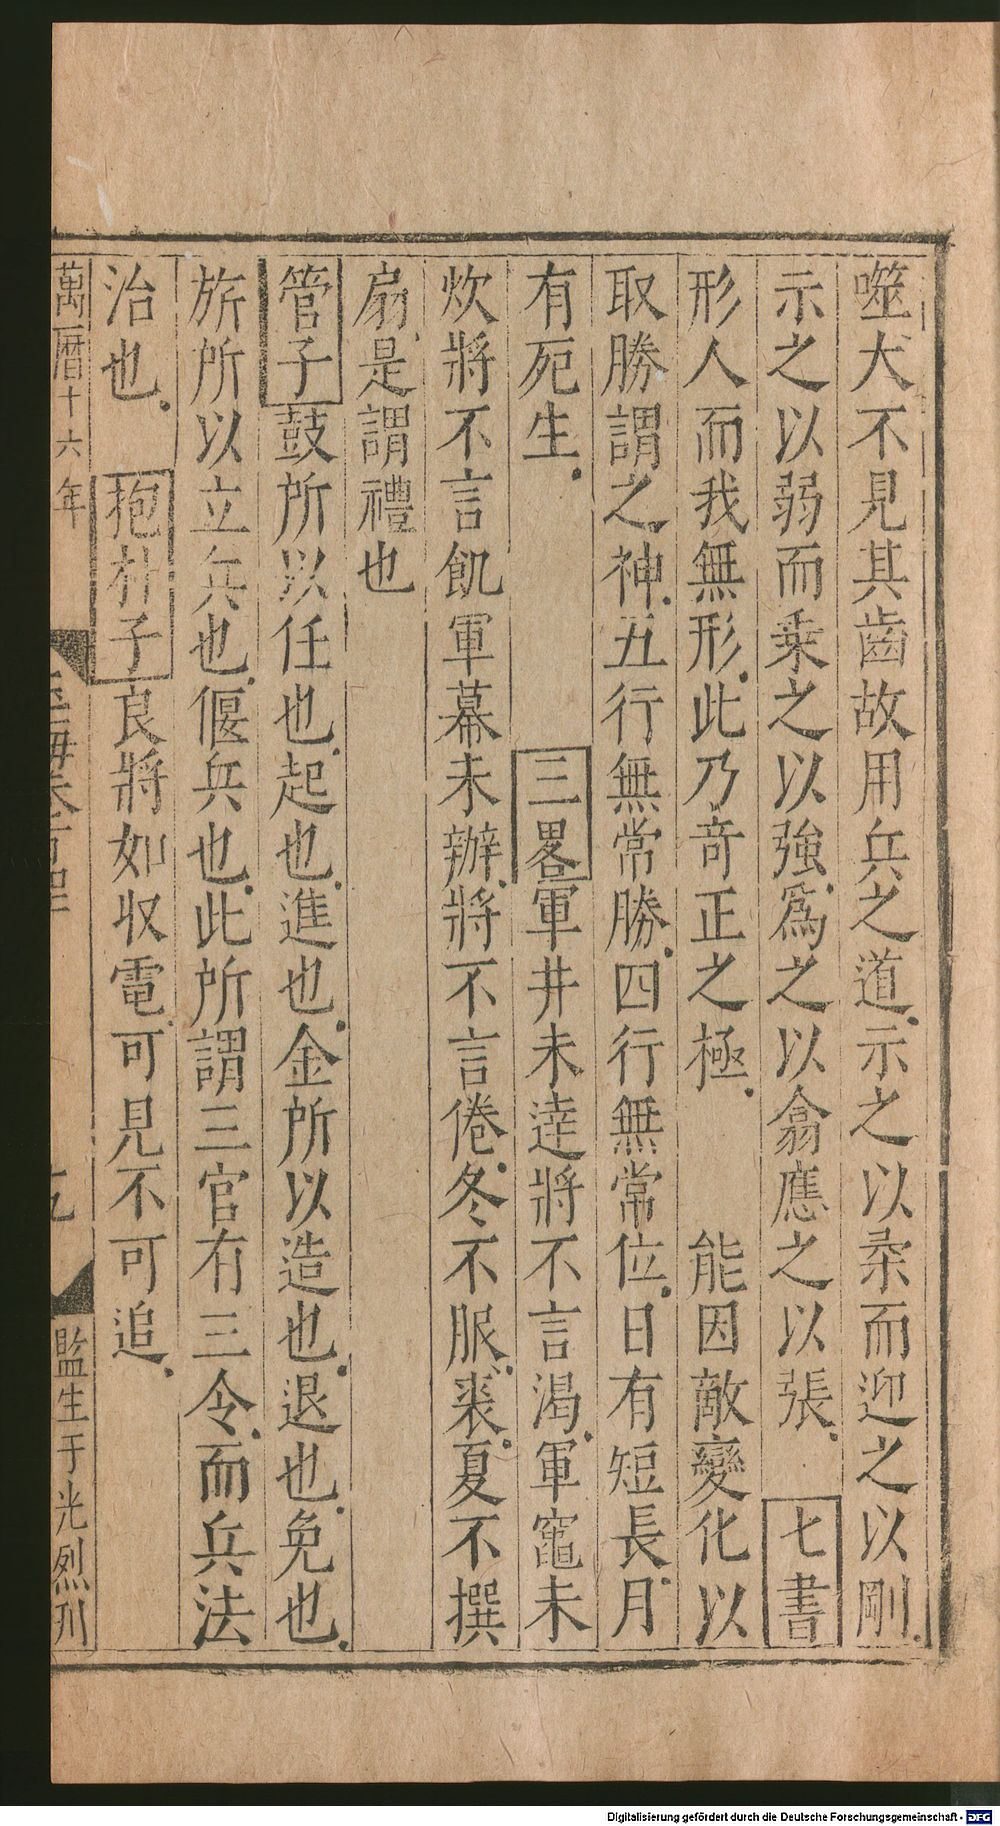 噬犬不見其齒故用兵之道示之以柔而迎之以剛
示之以弱而乗之以強爲之以翕應之以張 七書
形人而我無形此乃竒正之極 能因敵變化以
取勝謂之神五行無常勝四行無常位日有短長月
有死生 三畧軍井未達將不言渴軍竈未
炊將不言飢軍幕未辦將不言倦冬不服裘夏不撰
扇是謂禮也
管子鼓所以任也起也進也金所以造也退也免也
旂所以立兵也偃兵也此所謂三官有三令而兵法
治也 抱朴子良將如収電可見不可追
萬曆十六年
玉海卷
九
監生于光烈刋
Digitalisierung gefördert durch die Deutsche Forschungsgemeinschaft - DFG